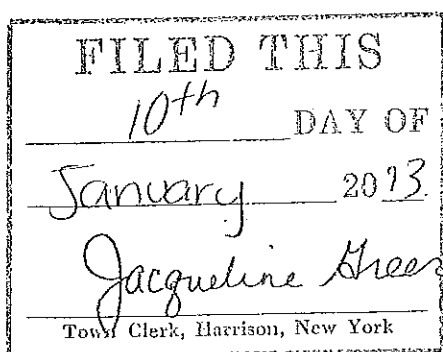 FILED THIS
10th DAY OF
January 2013
Jacqueline Greer
Town Clerk, Harrison, New York